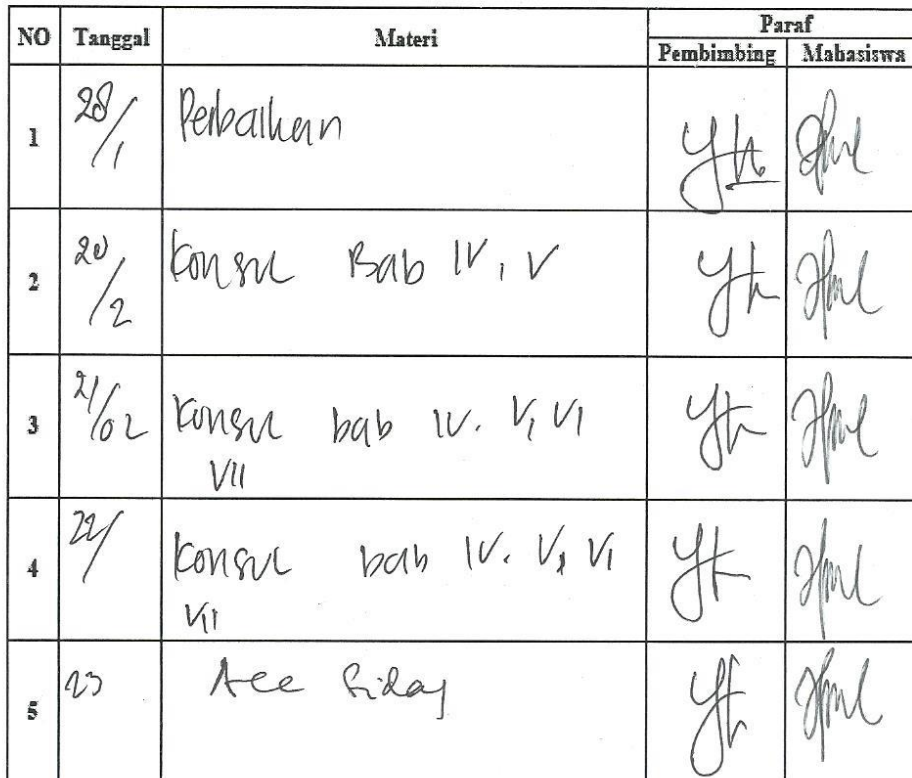 NO Tanggal Materi Paraf
Pembimbing Mahasiswa
1 28/1 Perbaikan
2 20/2 Konsul Bab IV, V
3 21/02 Konsul bab IV. V, VI
VII
4 22/ Konsul bab IV. V, VI
VII
5 23 Acc Sidang